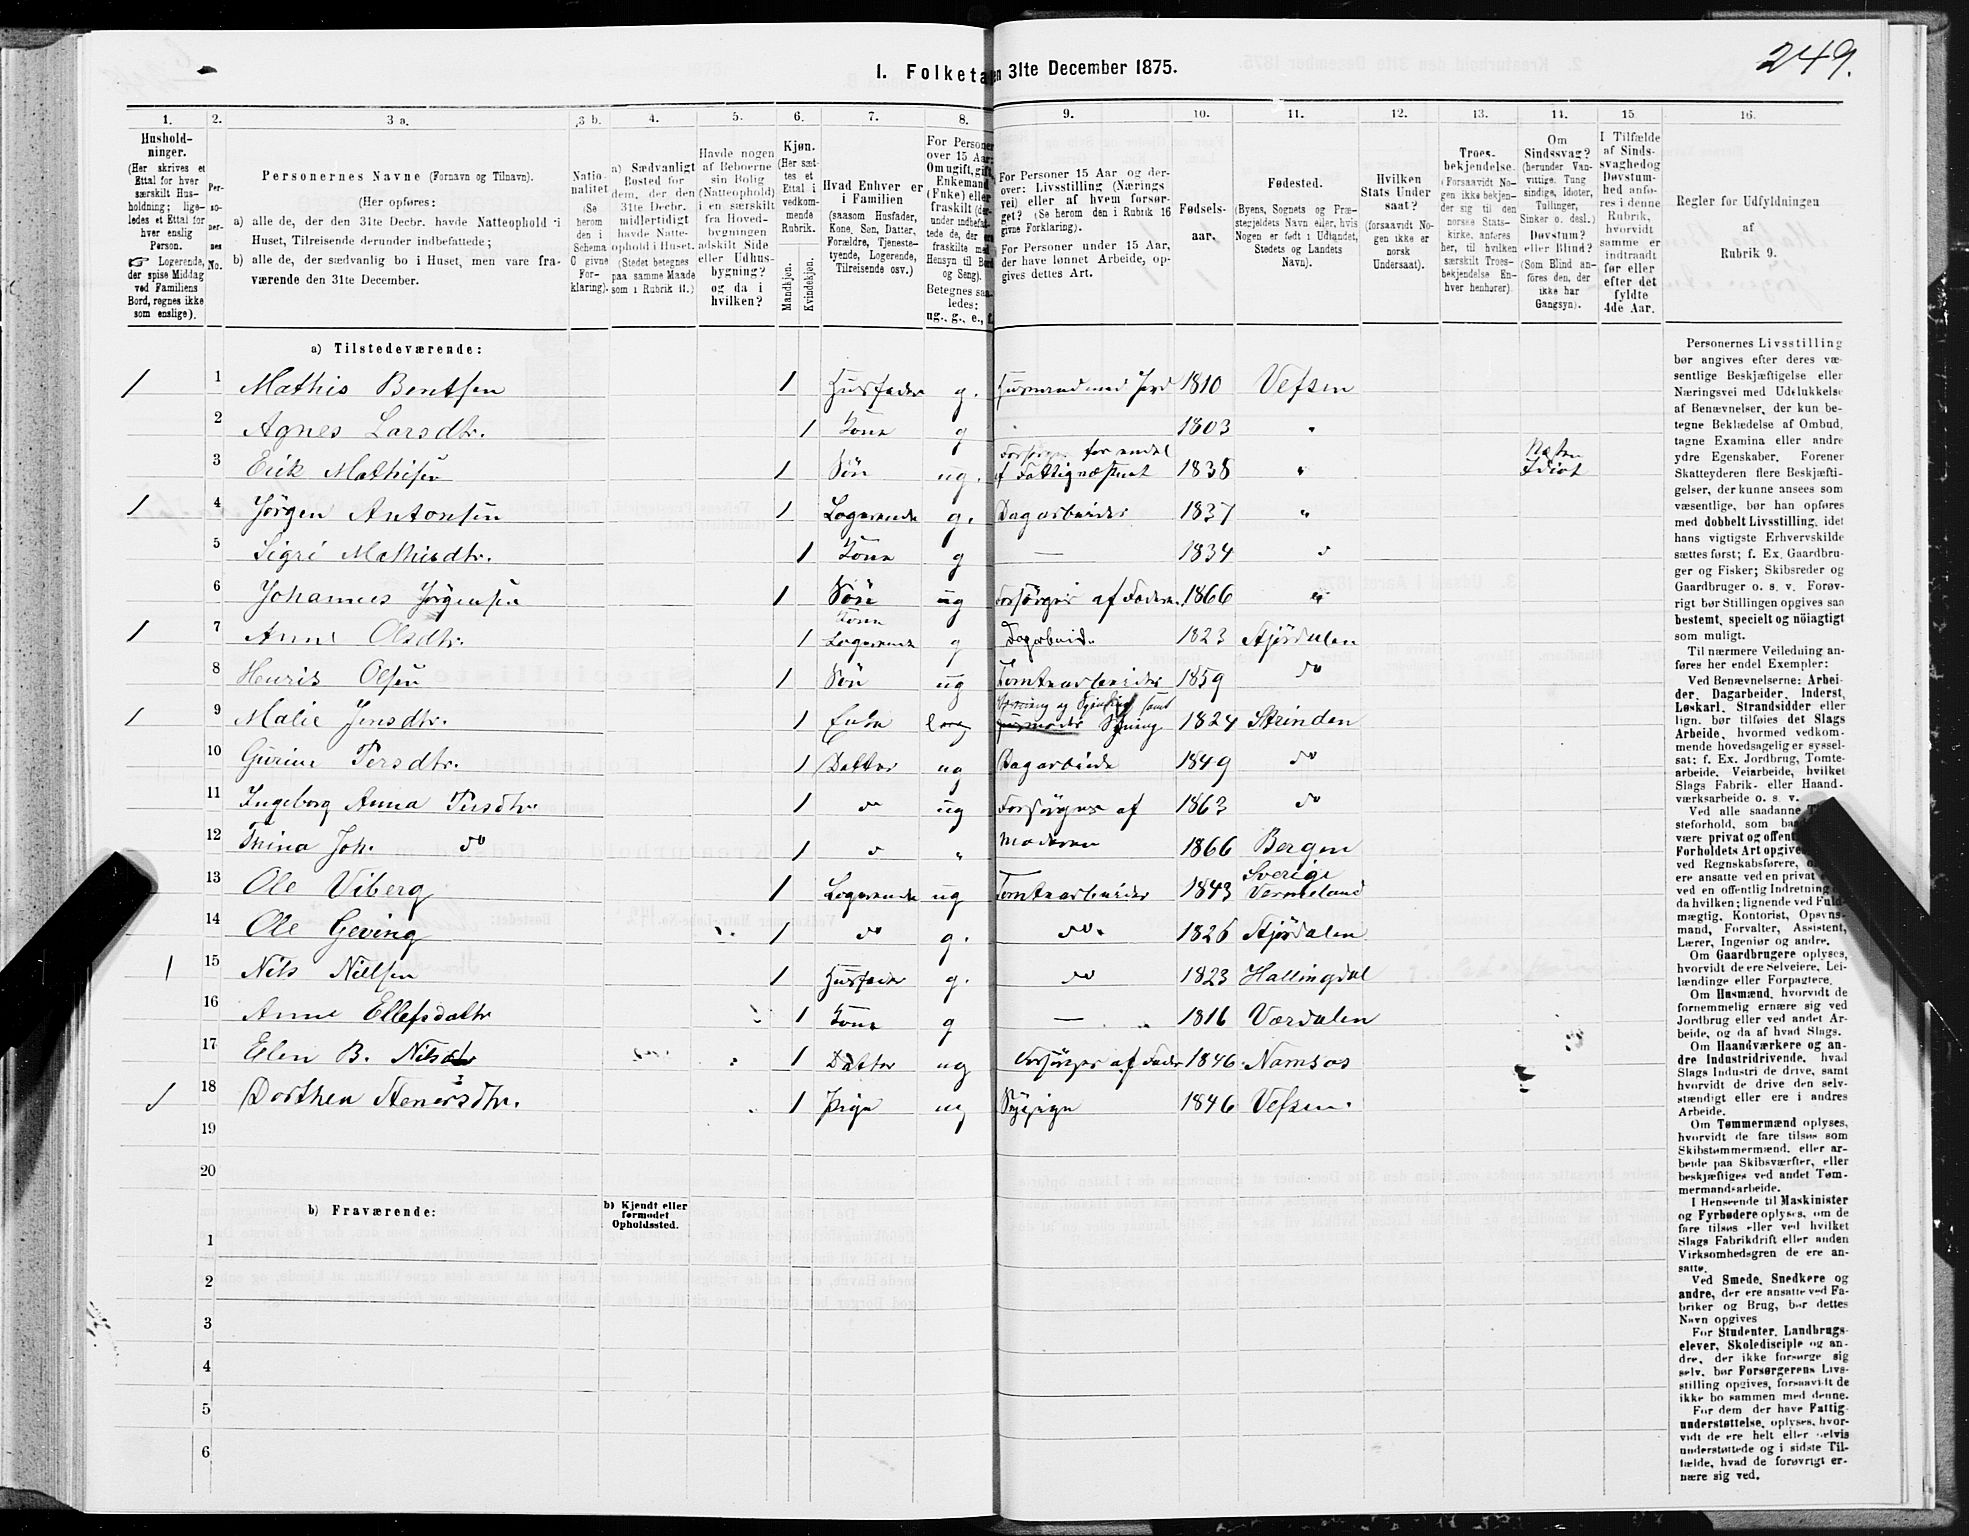 249.
I. Folketa en 31te December 1875.
1. 2. 3 a. 3 b. 4. 5. 6. 7. 8. 9. 10. 11. 12. 13. 14. 15 16.
Hushold-
ninger.
(Her skrives et
Ettal for hver
særskilt Hus-
holdning; lige-
ledes et Ettal for
hver enslig
Person.
☞ Logerende,
der spise Middag
ved Familiens
Bord, regnes ikke
som enslige).
Per-
so-
ner-
nes
No.
Personernes Navne (Fornavn og Tilnavn).
(Her opføres:
a) alle de, der den 31te Decbr. havde Natteophold i
Huset, Tilreisende derunder indbefattede;
b) alle de, der sædvanlig bo i Huset, men vare fra-
værende den 31te December.
Natio-
nalitet
(Se
herom
den i
Schema
C givne
For-
klaring).
a) Sædvanligt
Bosted for
dem, der den
31te Decbr.
midlertidigt
havde Natte-
ophold i Huset.
(Stedet betegnes
paa samme Maade
som i Rubrik 11.)
Havde nogen
af Beboerne
sin Bolig
(Natteophold)
i en særskilt
fra Hoved-
bygningen
adskilt Side
eller Udhus-
bygning?
og da i
hvilken?
Kjøn.
(Her sæt-
tes et
Ettal i
vedkom-
mende
Rubrik.
Mandkjøn.
Kvindekjøn.
Hvad Enhver er
i Familien
(saasom Husfader,
Kone, Søn, Datter,
Forældre, Tjeneste-
tyende, Logerende,
Tilreisende osv.)
For Personer
over 15 Aar:
Om ugift, gift,
Enkemand
(Enke) eller
fraskilt (der-
under indbefat-
tede de, der ere
fraskilte med
Hensyn til Bord
og Seng).
Betegnes saa-
ledes:
ug., g., e., f.
For Personer 15 Aar og der-
over: Livsstilling (Nærings-
vei) eller af hvem forsør-
get? (Se herom den i Rubrik 16
givne Forklaring).
For Personer under 15 Aar,
der have lønnet Arbeide, op-
gives dettes Art.
Fødsels-
aar.
Fødested.
(Byens, Sognets og Præ-
stegjeldets Navn eller, hvis
Nogen er født i Udlandet,
Stedets og Landets
Navn).
Hvilken
Stats Under
saat?
(forsaavidt No-
gen ikke er
norsk
Undersaat).
Troes-
bekjendelse.
(Forsaavidt No-
gen ikke bekjen-
der sig til den
norske Stats-
kirke, anføres
her, til hvilken
særskilt Troes-
bekjendelse En-
hver henhører).
Om
Sindssvag?
(herunder Van-
vittige, Tung
sindige, Idioter,
Tullinger,
Sinker o. desl.)
Døvstum?
eller Blind?
(Som Blind an-
føres den, der
ikke har
Gangsyn).
I Tilfælde
af Sinds-
svaghedog
Døvstum-
hed anfø-
res i denne
Rubrik,
hvorvidt
samme er
indtraadt
før eller
efter det
fyldte
4de Aar.
Regler for Udfyldningen
af
Rubrik 9.
a) Tilstedeværende:
1 1 Mathis Bentsen 1 Husfader g. Husmand med Jord 1810 Vefsen
2 Agnes Larsdtr. 1 Kone g 1803 "
3 Erik Mathisen 1 Søn ug. Forsørges for endel af Fattigvæsenet 1838 " Næsten Idiot
1 4 Jörgen Antonsen 1 Logerende g. Dagarbeider 1837 "
5 Sigri Mathisdtr. 1 Kone g — 1834 "
6 Johannes Jörgensen 1 Søn ug Forsörges af Faderen 1866 "
1 7 Anne Olsdtr. 1 Kone Logerende g Dagarbeid. 1823 Stjördalen
8 Henrik Olsen 1 Søn ug Tomtearbeider 1859 do
1 9 Malie Jensdtr. 1 Enke Syning 1824 Strinden
10 Gurine Persdtr. 1 Datter ug Dagarbeide 1849 do
11 Ingeborg Anna Persdtr. 1 do ug Forsörges af 1863 do
12 Trina Joh. do 1 do " Moderen 1866 Bergen
13 Ole Viberg 1 Logerende ug Tomtearbeider 1843 Sverige Vermeland
14 Ole Geving 1 do g. do. 1826 Stjördalen
1 15 Nils Nielsen 1 Husfader g. do 1823 Hallingdal
16 Anne Ellefsdatr 1 Kone g — 1816 Værdalen
17 Elen B. Nilsdtr 1 Datter ug Forsörges af Fader 1846 Namsos
1 18 Dorthea Stenersdtr. 1 Pige ug Sypige 1846 Vefsen.
19
20
b) Fraværende:
b) Kjendt eller
formodet
Opholdssted.
1
2
3
4
5
6
Personernes Livsstilling
bør angives efter deres væ-
sentlige Beskjæftigelse eller
Næringsvei med Udelukkelse
af Benævnelser, der kun be-
tegne Beklædelse af Ombud,
tagne Examina eller andre
ydre Egenskaber. Forener
Skatteyderen flere Beskjæfti-
gelser, der kunne ansees som
væsentlige, bør han opføres
med dobbelt Livsstilling, idet
hans vigtigste Erhvervskilde
sættes først; f. Ex. Gaardbru-
ger og Fisker; Skibsreder og
Gaardbruger o. s. v. Forøv-
rigt bør Stillingen opgives saa
bestemt, specielt og nöiagtigt
som muligt.
Til nærmere Veiledning an-
føres her endel Exempler:
Ved Benævnelserne: Arbei-
der, Dagarbeider, Inderst,
Løskarl, Strandsidder eller
lign. bør tilføies det Slags
Arbeide, hvormed vedkom-
mende hovedsagelig er syssel-
sat; f. Ex. Jordbrug, Tomte-
arbeide, Veiarbeide, hvilket
Slags Fabrik- eller Haand-
værksarbeide o. s. v.
Ved alle saadanne
steforhold, som
være privat og offent
Forholdets Art opgives
ved Regnskabsførere,
ere ansatte ved en privat
ved en offentlig Indretning
da hvilken; lignende ved Fuld-
mægtig, Kontorist, Opsyns-
mand, Forvalter, Assistent,
Lærer, Ingeniør og andre.
Om Gaardbrugere oplyses,
hvorvidt de ere Selveiere, Lei-
lændinge eller Forpagtere.
Om Husmænd, hvorvidt de
fornemmelig ernære sig ved
Jordbrug eller ved andet Ar-
beide, og da af hvad Slags.
Om Haandværkere og an-
dre Industridrivende, hvad
Slags Industri de drive, samt
hvorvidt de drive den selv-
stændigt eller ere i andres
Arbeide.
Om Tømmermænd oplyses,
hvorvidt de fare tilsøs som
Skibstømmermænd, eller ar-
beide paa Skibsværfter, eller
beskjæftiges ved andet Tøm-
mermandsarbeide.
I Henseende til Maskinister
og Fyrbødere oplyses, om de
fare tilsøs eller ved hvilket
Slags Fabrikdrift eller anden
Virksomhedsgren de ere an-
satte.
Ved Smede, Snedkere og
andre, der ere ansatte ved Fa-
briker og Brug, bør dettes
Navn opgives
For Studenter, Landbrugs-
elever, Skoledisciple og an-
dre, der ikke forsørge sig
selv, bør Forsørgerens Livs-
stilling opgives, forsaavidt de
ikke bo sammen med denne.
For dem der have Fattig-
understøttelse, oplyses, hvor-
vidt de ere helt eller delvis
understøttede og i sidste Til-
fælde, hvad de forøvrigt er-
nære sig ved.